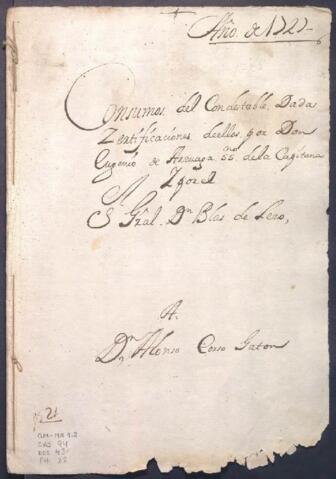 Año. de 1727
Consumos. del Condestable, Dadas
Zertificaciones. deellos, por Don
Eugenio de Arzuaga. ssno. dela Capitana
Y por el
S. Gral. Dn. Blas de Lezo,
A.
Dn. Alonso Corso Gaton
21
CAJ 94